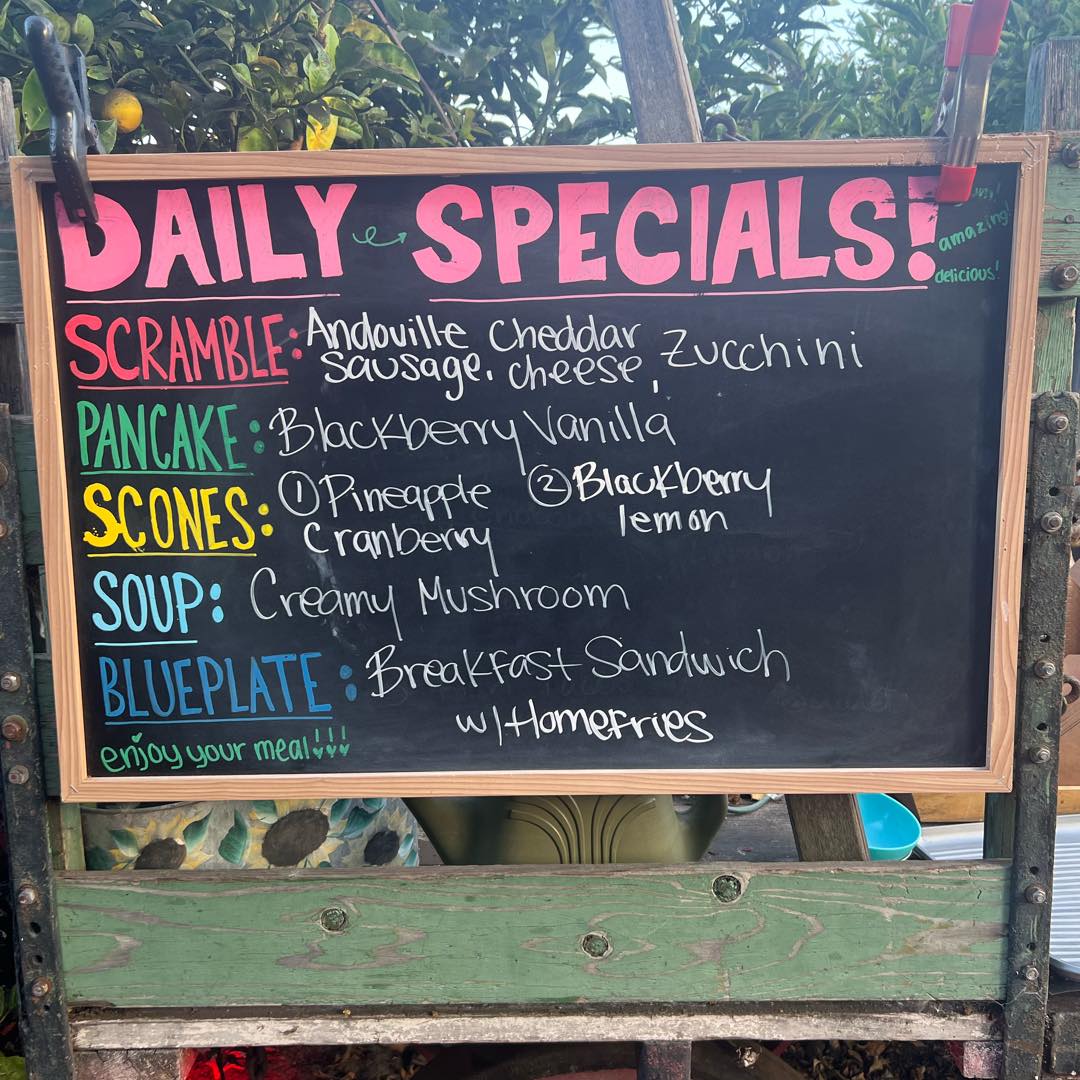 DAILY SPECIALS!
amazing!
delicious!
SCRAMBLE: Andouille Cheddar Zucchini
sausage, cheese,
PANCAKE: Blackberry Vanilla
SCONES: ① Pineapple ② Blackberry
Cranberry lemon
SOUP: Creamy Mushroom
BLUEPLATE: Breakfast Sandwich
w/Homefries
enjoy your meal!!!